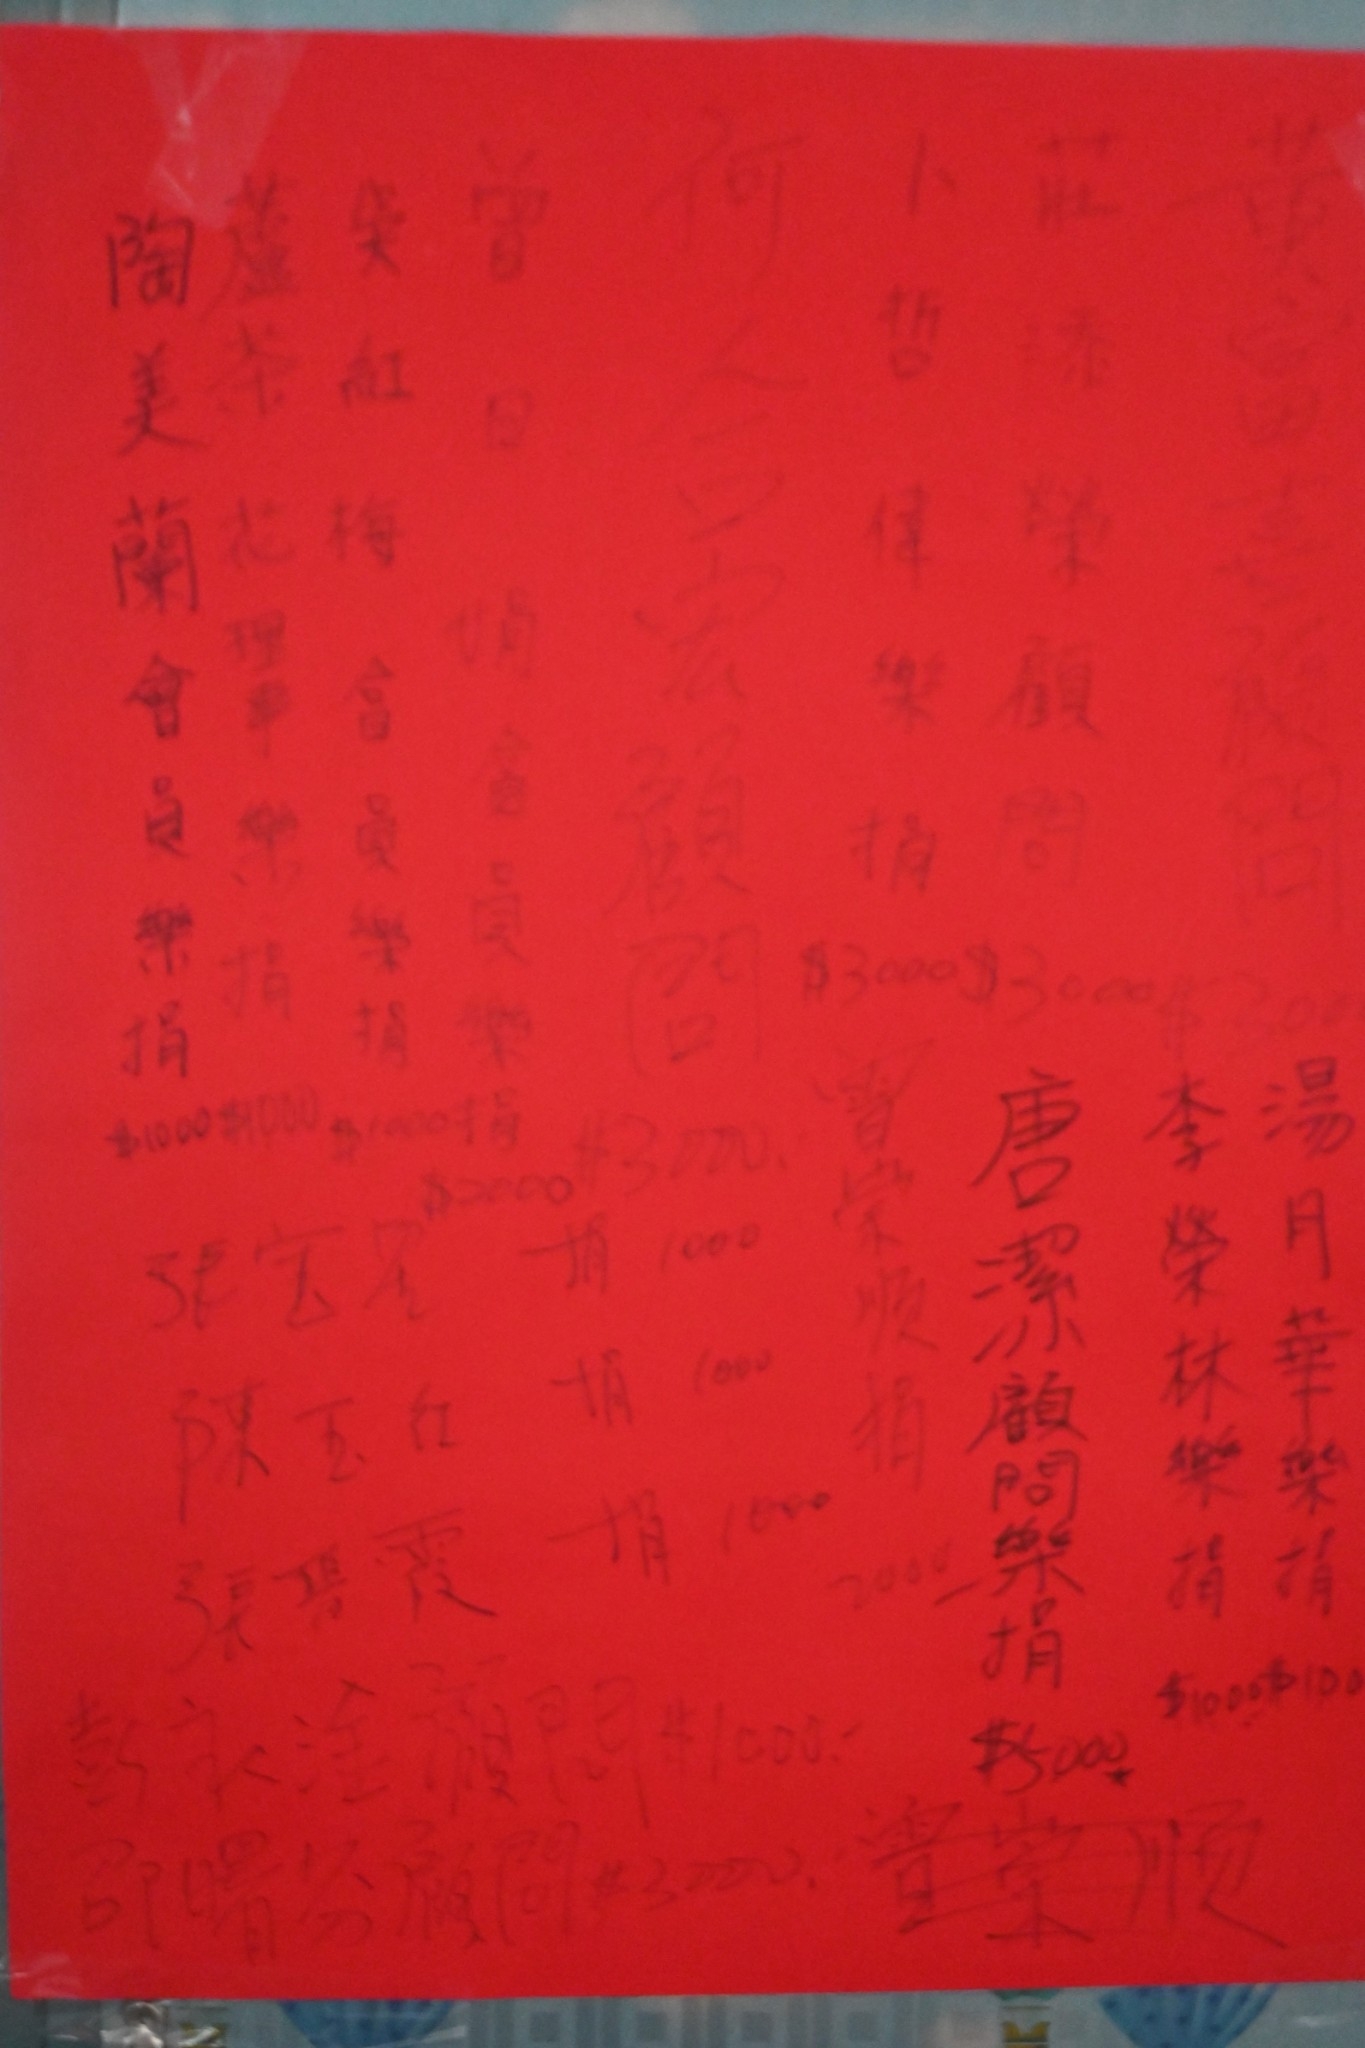 黃富喜顧問
莊添榮顧問 $3000
卜哲偉樂捐 $3000
何人宏顧問 $3000.
曾日娟會員樂捐 $2000
柴紅梅會員樂捐 $1000
蘆茶花理事樂捐 $1000
陶美蘭會員樂捐 $1000
湯月華樂捐
李榮林樂捐 $1000
唐潔顧問樂捐 $5000
榮順捐 2000
張 捐 1000
陳玉紅 捐 1000
張碧霞 捐 1000
彭永淦顧問 $1000.-
邵曙芬顧問 $3000.